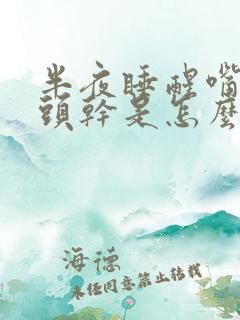 半夜睡醒嘴
頭幹是怎麼
海德
未经同意禁止转载